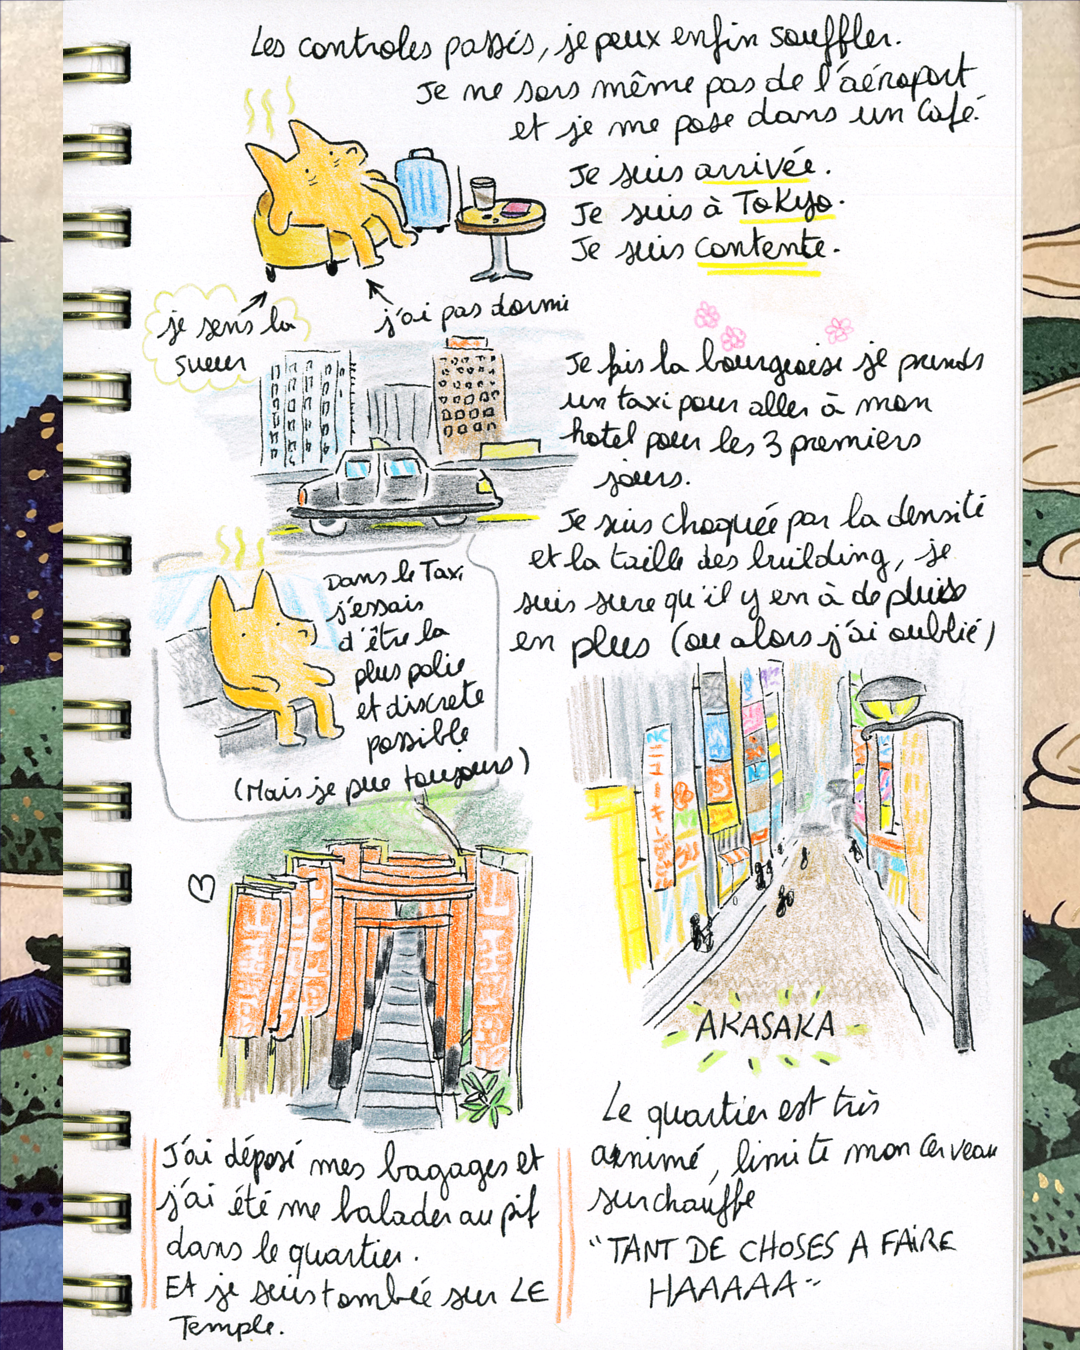 Les controles passés, je peux enfin souffler.
Je ne sors même pas de l'aéroport
et je me pose dans un café.
Je suis arrivée.
Je suis à Tokyo.
Je suis contente.
je sens la
sueur
j'ai pas dormi
Je fais la bourgeoise je prends
un taxi pour aller à mon
hotel pour les 3 premiers
jours.
Je suis choquée par la densité
et la taille des building, je
suis sure qu'il y en à de pluss
en plus (ou alors j'ai oublié)
Dans le Taxi
j'essais
d'être la
plus polie
et discrete
possible
(Mais je pue toujours)
AKASAKA
J'ai déposé mes bagages et
j'ai été me balader au pif
dans le quartier.
Et je suis tombée sur LE
Temple.
Le quartier est très
animé, limite mon cerveau
surchauffe
"TANT DE CHOSES A FAIRE
HAAAAA"